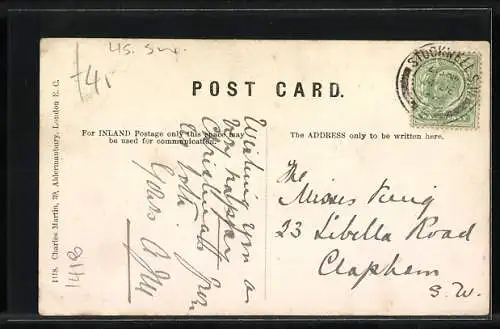 POST CARD.
STOCKWELL
For INLAND Postage only this space may
be used for communication.
The ADDRESS only to be written here.
Wishing you a
very happy
Christmas from
Yours
The
Misses King
23 Libella Road
Clapham
S.W.
1118. Charles Martin, 39, Aldermanbury, London E.C.
141B